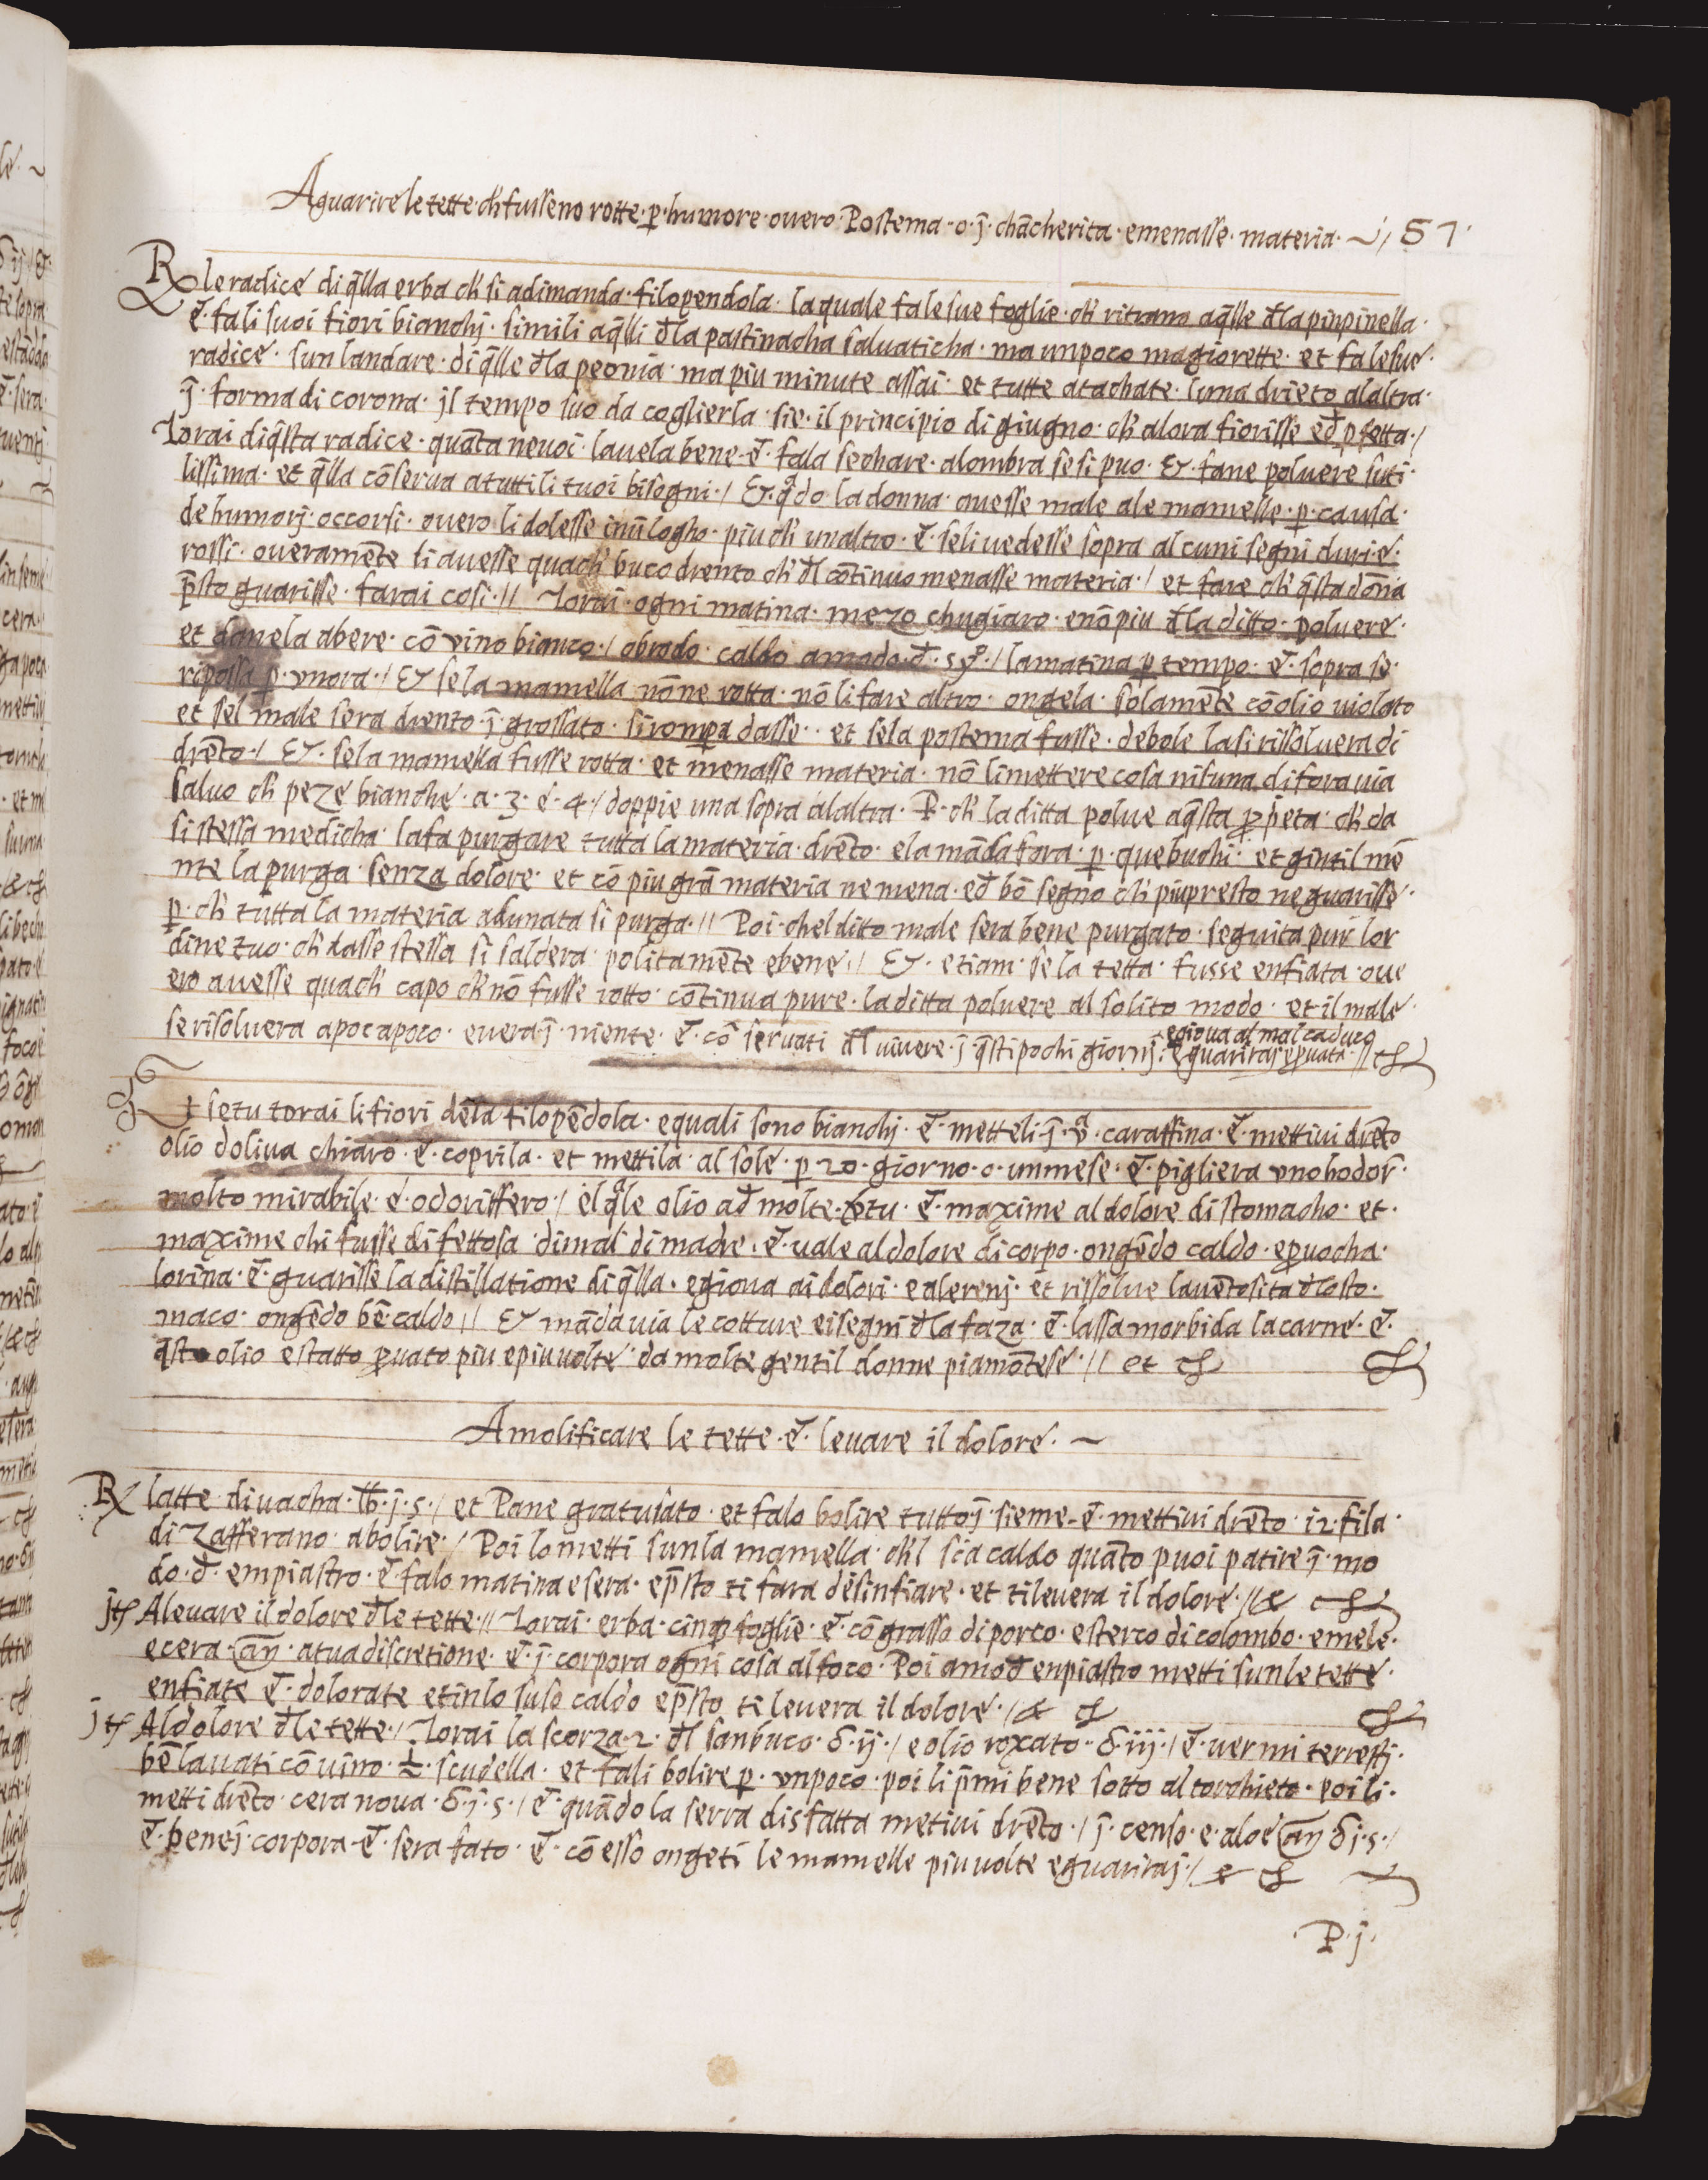 Aguarire le tette ch' fusseno rotte · p̱ · humore · ouero · Postema · o · j̄ · chācherita · e menasse · materia · ~ / 57 ·
Rx le radice di q̄lla erba ch' si adimanda · filopendola · la quale fa le sue foglie · ch' ritrano aq̄lle đla pinpinella ·
ē · fa li suoi fiori bianchj · simili aq̄lli đla pastinacha saluaticha · ma unpoco magiorette · et fa le sue ·
radice · sun landare · di q̄lle đla peonia · ma piu minute assai · et tutte atachate · luna drieto alaltra ·
j̄ · forma di corona · jl tempo suo da coglierla · sie · il principio di giugno · ch' alora fiorisse ed̄ p̱fetta · /
Torai diq̄sta radice · quāta ne uoi · lauela bene · ē · fala sechare · alombra se si puo · & · fane poluere suti ·
lissima · et q̄lla cōserua a tutti li tuoi bisogni · / & · q̄do la donna · auesse male ale mamelle · p̱ · causa ·
de humorj · occorsi · ouero li dolesse inūlogho · piu ch' unaltro · ē · se li uedesse sopra alcuni segni duri · e ·
rossi · oueramēte li auesse qualch' buco drento ch' đl cōtinuo menasse materia · / et fare ch' q̄sta dōna
p̄sto guarisse · farai cosi · // Torai · ogni matina · mezo chugiaro · e nō piu đla ditto · poluere ·
et danela abere · cō vino bianco · / obrodo · caldo amodo · đ · syº · / la matina p̱ tempo · ē · sopra se ·
ripossa p̱ · vnora · / & se la mamella nōne rotta · nō li fare altro · ongela · solamēte cō olio uiolato
et sel male sera drento j̄ · grossato · si rompa dasse · · et se la postema fusse · debole la si rissoluera di
drēto · / & · se la mamella fusse rotta · et menasse materia · nō li mettere cosa nisuna di fora uia
saluo ch' peze bianche · a · 3 · e · 4 · / doppie una sopra alaltra · P · ch' la ditta polue aq̄sta p̱peta · ch' da
si stessa medicha · la fa purgare tutta la materia · drēto · e la māda fora · p̱ · que buchi · et gintil mē
nte la purga · senza dolore · et cō piu grā materia ne mena · ed̄ bō segno ch' piu presto ne guarisse ·
p̱ · ch' tutta la materia adunata si purga · // Poi · chel ditto male sera bene purgato · seguita pur lor
dine tuo · ch' dasse stessa si saldera politamēte ebene · // & · etiam · se la tetta · fusse enfiata · oue
ero auesse qualch' capo ch' nō fusse rotto · cōtinua pure · la ditta poluere al solito modo · et il male ·
se risoluera apoc apoco · euera j̄ · niente · ē · cō seruati đl uiuere · j̄ q̄sti pochi giornj · e guaritaj e p̱uata · //
egioua al mal caduco
Et se tu torai li fiori dela filopēdola · equali sono bianchj · ē · metteli j̄ · vª · caraffina · ē · mettiui drēto
olio doliua chiaro · ē · coprila · et mettila · al sole · p̱ 20 · giorno · o · unmese · ē · pigliera vnohodor ·
molto mirabile · e · odoriffero · / el q̄le olio ad̄ molte · v̄tu · ē · maxime al dolore di stomacho · et ·
maxime chi fusse difettosa dimal di madre · ē · uale al dolore di corpo · ongēdo caldo · e p̱uocha ·
lorina · ē · guarisse la distillatione di q̄lla · egioua ai dolori · e alerenj · et rissolue lauētosita đlosto ·
maco · ongēdo bē · caldo · // & māda uia le cotture e i segni đla faza · ē · lassa morbida la carne · ē ·
q̄sto olio e statto p̱uato piu e piu uolte · da molte gentil donne piamōtese · // et
Amolificare le tette · ē · leuare il dolore · ~
Rx latte di uacha · lb · j · s · / et Pane gratusato · et falo bolire tutto j̄ · sieme · ē · mettiui drēto · 12 · fila ·
di Zafferano · abolire · / Poi lo metti sunla mamella · ch' l sia caldo quāto puoi patire j̄ · mo
do · đ · empiastro · ē · falo matina e sera · e p̄sto ti fara desinfiare · et ti leuera il dolore · // &
jt Aleuare il dolore đle tette · // Torai · erba · cinq̱ foglie · ē · cō grasso di porco · e sterco di colombo · e mele ·
e cera · añ · atua discretione · ē · j̄ · corpora ogni cosa al foco · Poi amođ enpiastro metti sun le tette ·
enfiate ē · dolorate et inlo suso caldo e p̄sto ti leuera il dolore · / &
jt Al dolore đle tette · / Torai la scorza · 2 · đl sanbuco · δ · ij · / e olio roxato · δ · iij · / ē · uermi terrestj ·
bē lauati cō uino · ½ · scudella · et fali bolire p̱ · vnpoco · poi li p̄mi bene sotto al torchieto · poi li ·
metti drēto · cera noua · δ · j · s · / ē · quādo la serra disfatta metiui drēto · / j̄ · censo · e · aloe añ δ j · s · /
ē · bene j̄ · corpora · ē · sera fato · ē · cō esso ongeti le mamelle piu uolte e guaritaj · / &
· P · j ·